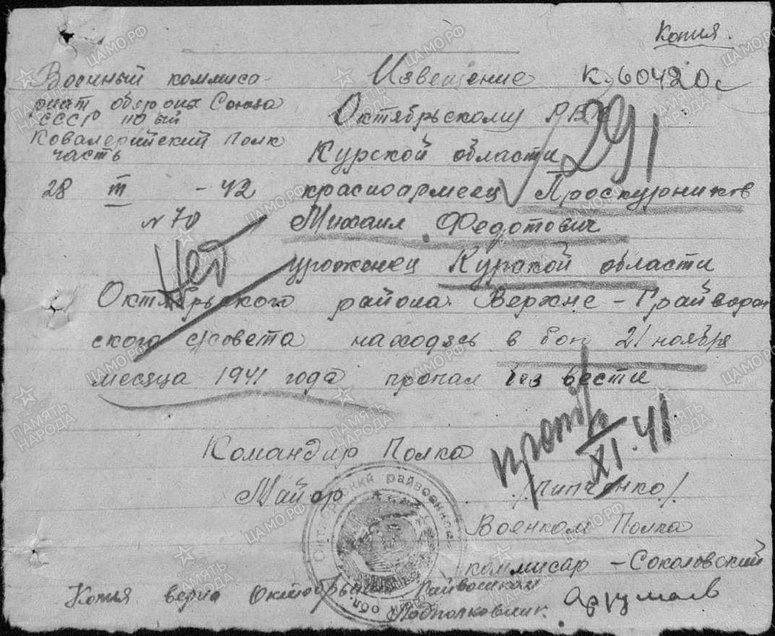 Копия.
Военный коммиса-
риат обороны Союза
СССР
Ковалерийский Полк
часть
28 III -42
N 70
Извещение К 60420с
Октябрьскому РВК
291
Курской области
красноармеец Проскурников
Михаил Федотович
уроженец Курской области
Октябрьского района Верхне-Грайворон
ского с/совета находясь в бою 21 ноября
месяца 1941 года пропал без вести
XI.41.
Командир Полка
Майор
Военком Полка
коммисар - Соколовский
Копья верна Октябрьский Райвоенком
Подполковник